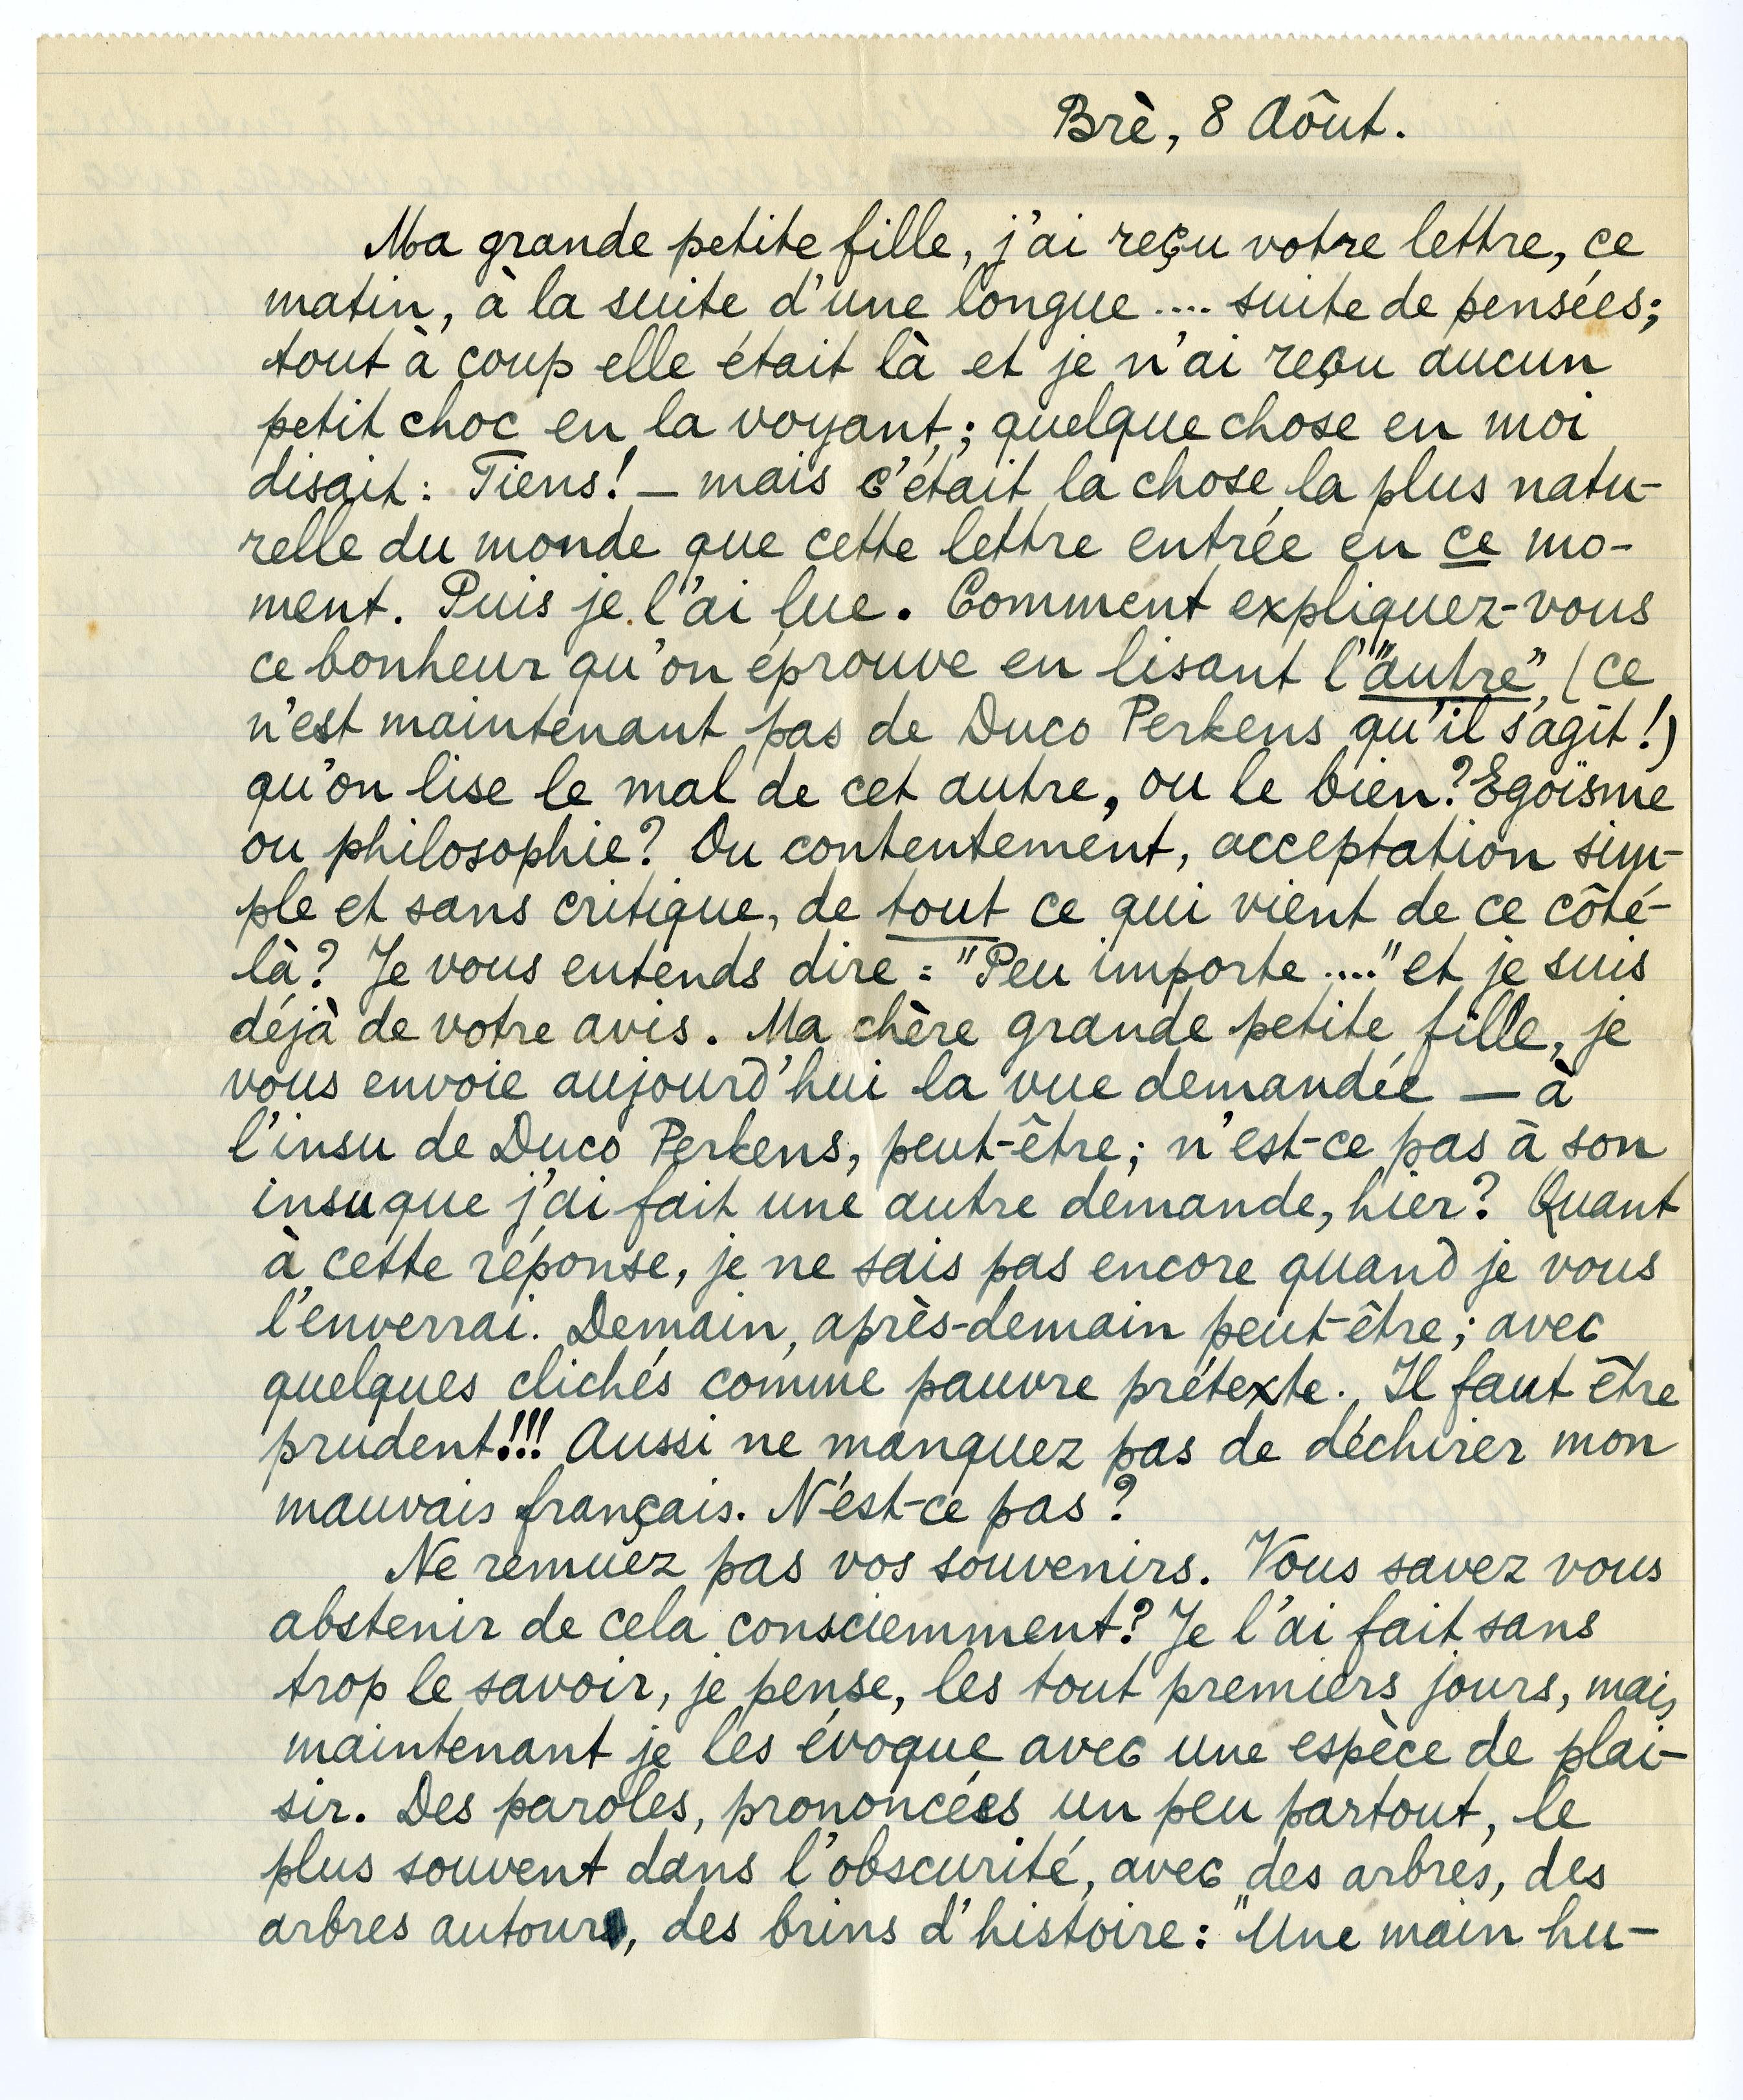 Brè, 8 Aôut.
Ma grande petite fille, j'ai reçu votre lettre, ce
matin, à la suite d'une longue .... suite de pensées;
tout à coup elle était là et je n'ai reçu aucun
petit choc en la voyant; quelque chose en moi
disait: Tiens! — mais c'était la chose la plus natu-
relle du monde que cette lettre entrée en ce mo-
ment. Puis je l'ai lue. Comment expliquez-vous
ce bonheur qu'on éprouve en lisant l'"autre", (ce
n'est maintenant pas de Duco Perkens qu'il s'agit!)
qu'on lise le mal de cet autre, ou le bien? Egoïsme
ou philosophie? Ou contentement, acceptation sim-
ple et sans critique, de tout ce qui vient de ce côté-
là? Je vous entends dire: "Peu importe ...." et je suis
déjà de votre avis. Ma chère grande petite fille, je
vous envoie aujourd'hui la vue demandée — à
l'insu de Duco Perkens, peut-être; n'est-ce pas à son
insu que j'ai fait une autre demande, hier? Quant
à cette réponse, je ne sais pas encore quand je vous
l'enverrai. Demain, après-demain peut-être; avec
quelques clichés comme pauvre prétexte. Il faut être
prudent!!! Aussi ne manquez pas de déchirer mon
mauvais français. N'est-ce pas?
Ne remuez pas vos souvenirs. Vous savez vous
abstenir de cela consciemment? Je l'ai fait sans
trop le savoir, je pense, les tout premiers jours, mais
maintenant je les évoque avec une espèce de plai-
sir. Des paroles, prononcées un peu partout, le
plus souvent dans l'obscurité, avec des arbres, des
arbres autour, des brins d'histoire: "Une main hu-